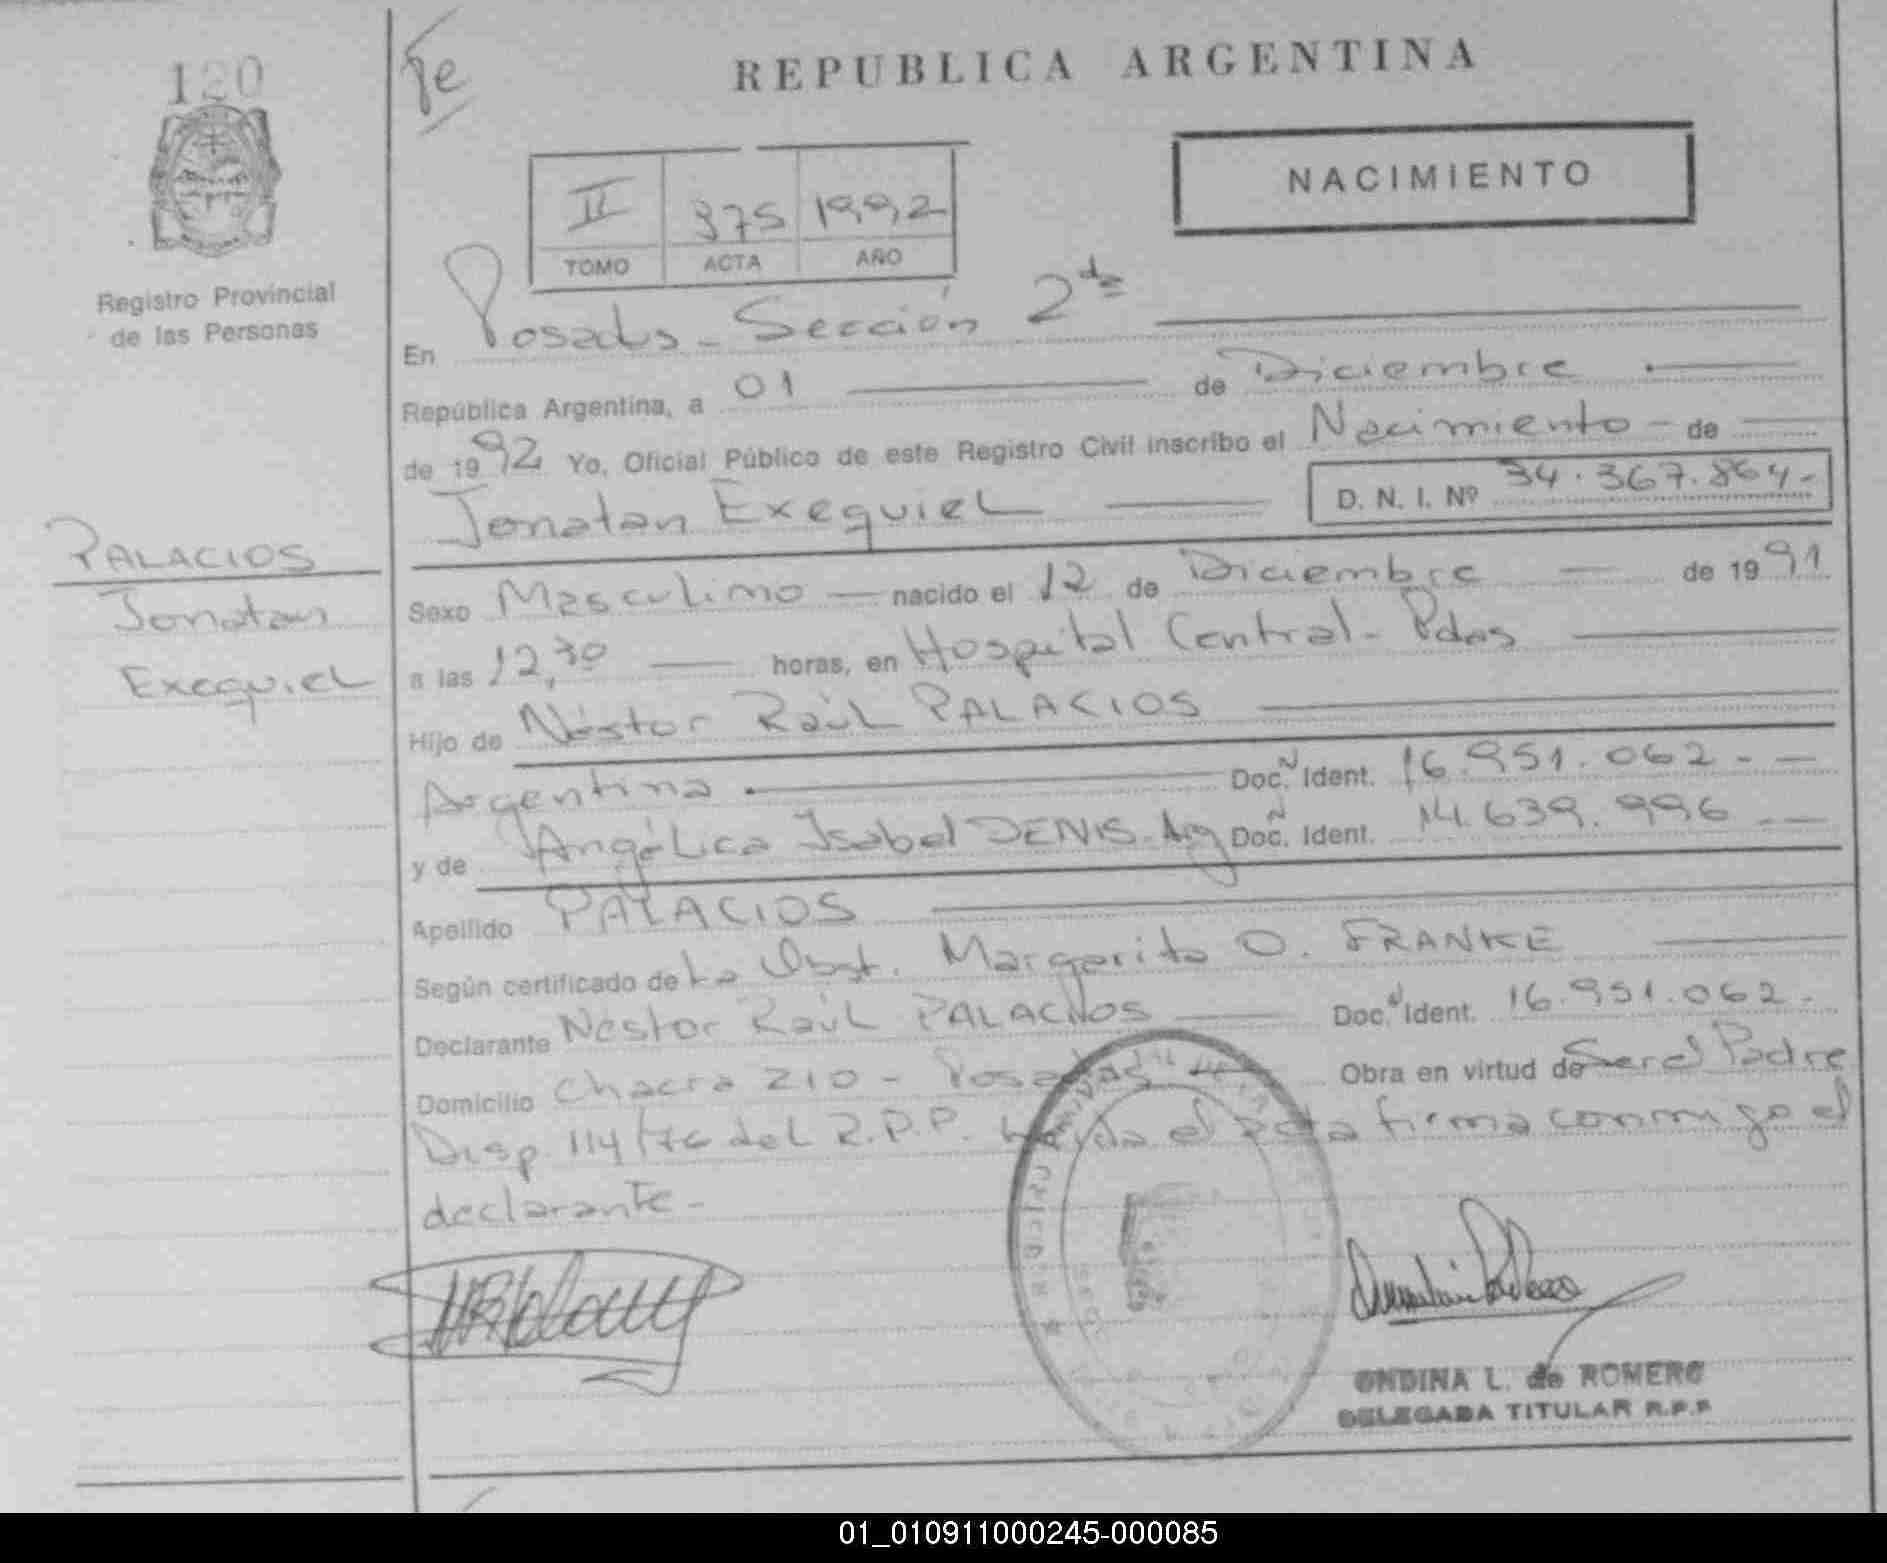 120
Registro Provincial
de las Personas
PALACIOS
Jonatan
Exequiel
REPUBLICA ARGENTINA
NACIMIENTO
II 375 1992
TOMO ACTA AÑO
En Posadas - Sección 2da
República Argentina, a 01 de Diciembre
de 1992 Yo, Oficial Público de este Registro Civil inscribo el Nacimiento - de
Jonatan Exequiel D. N. I. Nº 34.367.864.-
Sexo Masculino - nacido el 12 de Diciembre - de 1991
a las 12,30 horas, en Hospital Central - Pdas
Hijo de Néstor Raúl PALACIOS
Argentina. Doc. N Ident. 16.951.062 - -
y de Angélica Isabel DENIS - Arg Doc. N Ident. 14.639.996 - -
Apellido PALACIOS
Según certificado de La Obst. Margarita O. FRANKE
Declarante Néstor Raúl PALACIOS Doc. N Ident. 16.951.062.-
Domicilio Chacra 210 - Posadas Obra en virtud de Ser el Padre
Disp. 114/76 del R.P.P. Leída el acta firma conmigo el
declarante -
ONDINA L. de ROMERO
DELEGADA TITULAR R.P.P
01_010911000245-000085